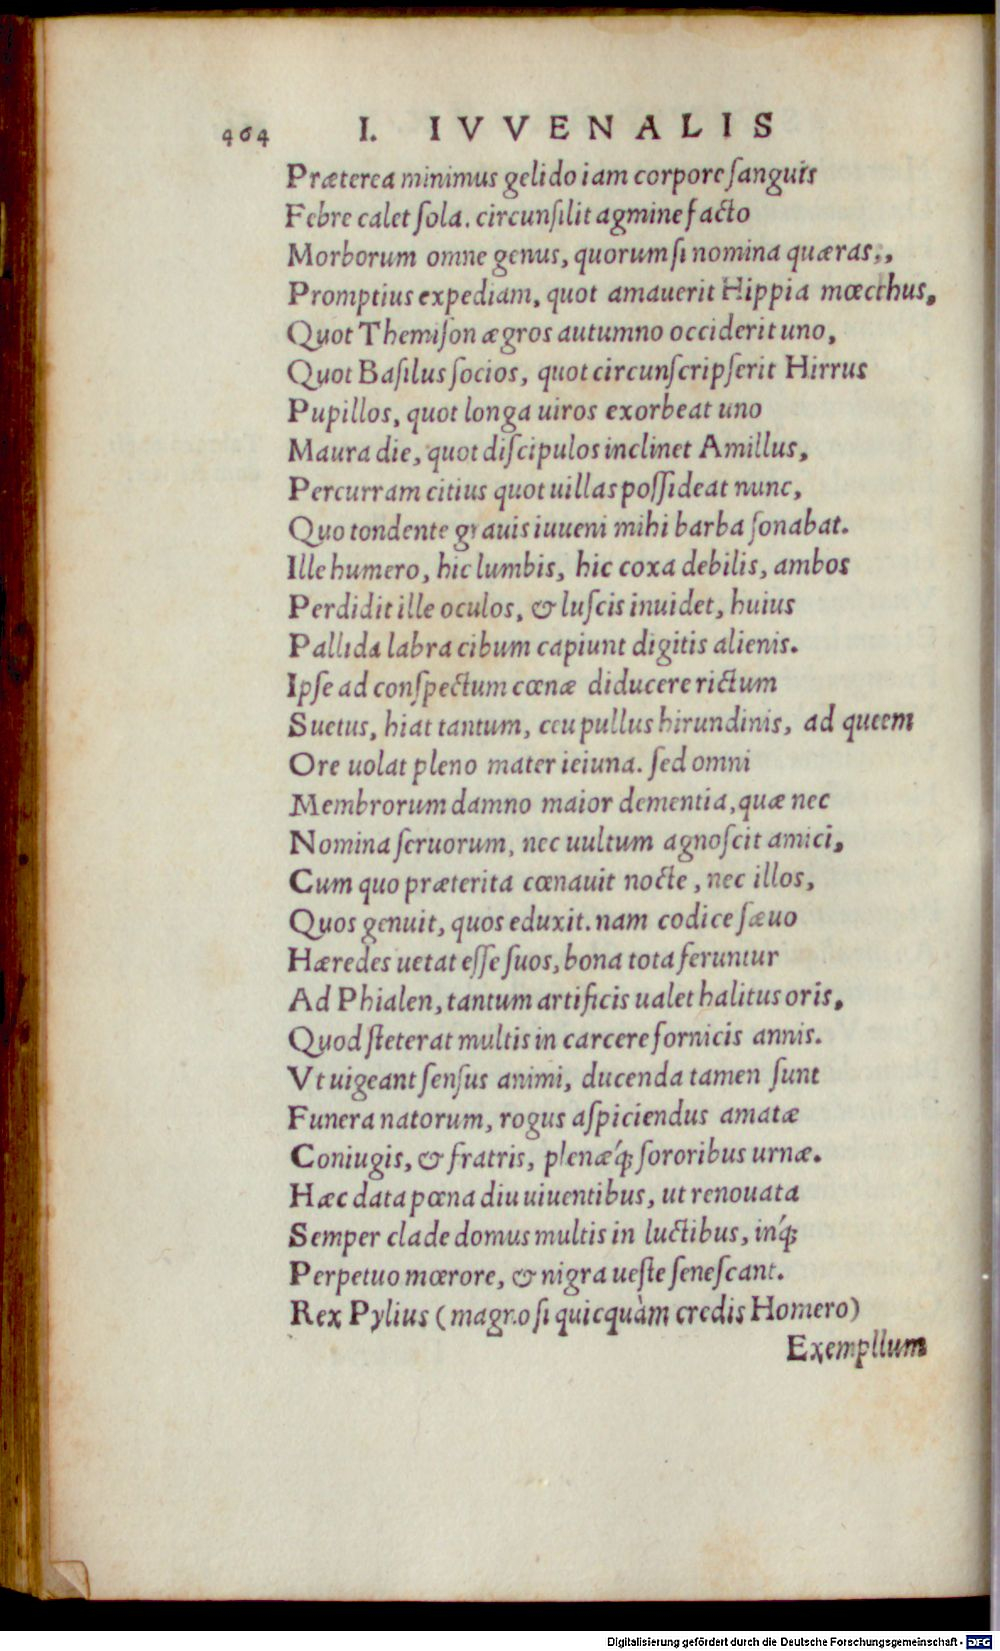 464 I. IVVENALIS
Præterea minimus gelido iam corpore ſanguis
Febre calet ſola. circunſilit agmine facto
Morborum omne genus, quorum ſi nomina quæras;,
Promptius expediam, quot amauerit Hippia mœchus,
Quot Themiſon ægros autumno occiderit uno,
Quot Baſilus ſocios, quot circunſcripſerit Hirrus
Pupillos, quot longa uiros exorbeat uno
Maura die, quot diſcipulos inclinet Amillus,
Percurram citius quot uillas poſſideat nunc,
Quo tondente grauis iuueni mihi barba ſonabat.
Ille humero, hic lumbis, hic coxa debilis, ambos
Perdidit ille oculos, & luſcis inuidet, huius
Pallida labra cibum capiunt digitis alienis.
Ipſe ad conſpectum cœnæ diducere rictum
Suetus, hiat tantum, ceu pullus hirundinis, ad queem
Ore uolat pleno mater ieiuna. ſed omni
Membrorum damno maior dementia, quæ nec
Nomina ſeruorum, nec uultum agnoſcit amici,
Cum quo præterita cœnauit nocte, nec illos,
Quos genuit, quos eduxit. nam codice ſæuo
Hæredes uetat eſſe ſuos, bona tota feruntur
Ad Phialen, tantum artificis ualet halitus oris,
Quod ſteterat multis in carcere fornicis annis.
Vt uigeant ſenſus animi, ducenda tamen ſunt
Funera natorum, rogus aſpiciendus amatæ
Coniugis, & fratris, plenæq́; ſororibus urnæ.
Hæc data pœna diu uiuentibus, ut renouata
Semper clade domus multis in luctibus, inq́;
Perpetuo mœrore, & nigra ueſte ſeneſcant.
Rex Pylius (magno ſi quicquàm credis Homero)
Exempllum
Digitalisierung gefördert durch die Deutsche Forschungsgemeinschaft - DFG